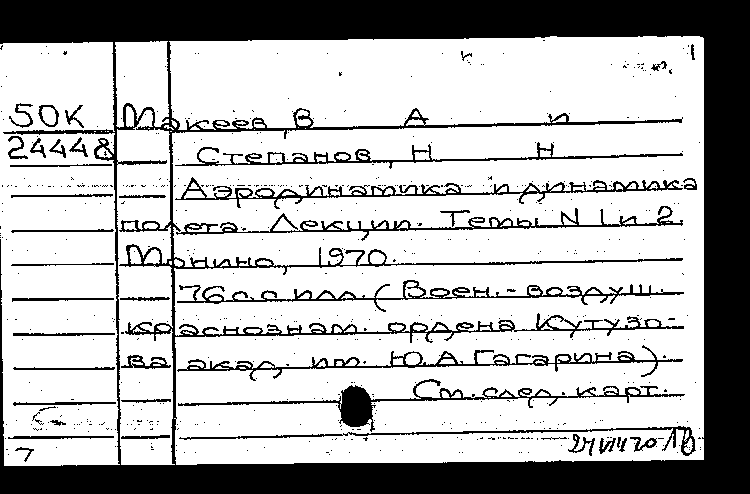 1
50К Макеев, В А и
24448 Степанов, Н Н
Аэродинамика и динамика
полета. Лекции. Темы N 1 и 2.
Монино, 1970.
76 с. с илл. (Воен.-воздуш.
краснознам. ордена Кутузо-
ва акад. им. Ю.А. Гагарина).
См. след. карт.
7